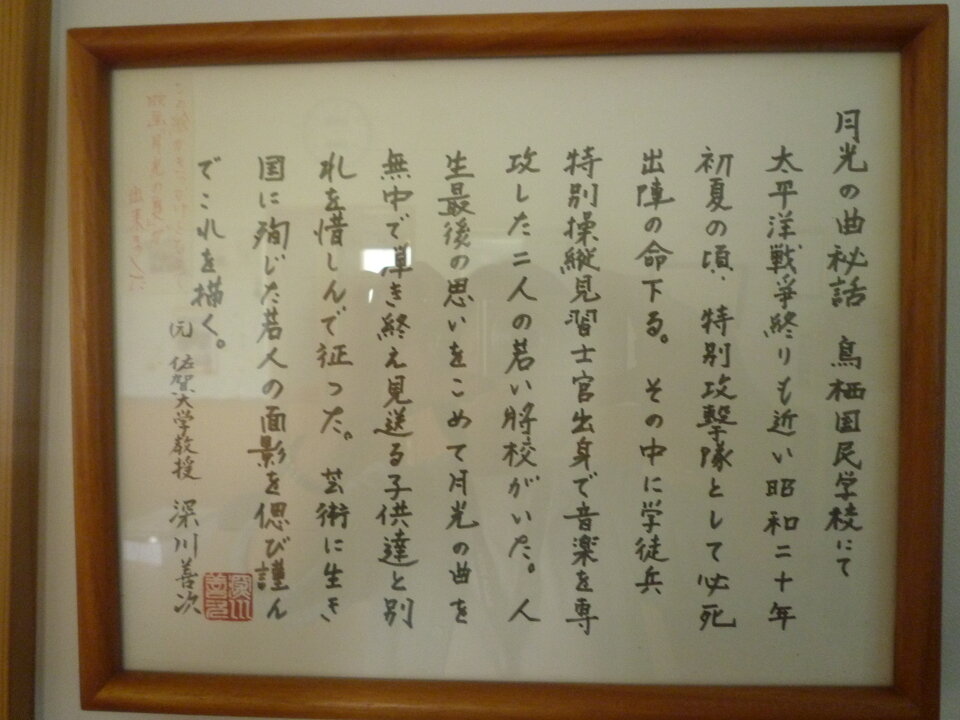 月光の曲秘話 鳥栖国民学校にて
太平洋戦争終りも近い昭和二十年
初夏の頃、特別攻撃隊として必死
出陣の命下る。その中に学徒兵
特別操縦見習士官出身で音楽を専
攻した二人の若い将校がいた。人
生最後の思いをこめて月光の曲を
無中で弾き終え見送る子供達と別
れを惜しんで征った。芸術に生き
国に殉じた若人の面影を偲び謹ん
でこれを描く。
元 佐賀大学教授 深川善次